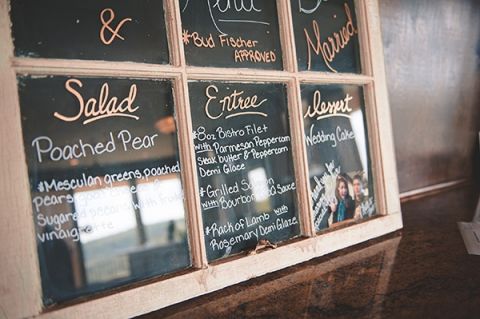 &
Menu
*Bud Fischer
APPROVED
Married
Salad
Poached Pear
*Mesculan greens, poached
pears
Sugared pecans with fruit
vinaigrette
Entree
*8oz Bistro Filet
with Parmesan Peppercorn
Steak butter & Peppercorn
Demi Glace
*Grilled Salmon
with Bourbon Sauce
*Rack of Lamb with
Rosemary Demi Glaze
Dessert
Wedding Cake